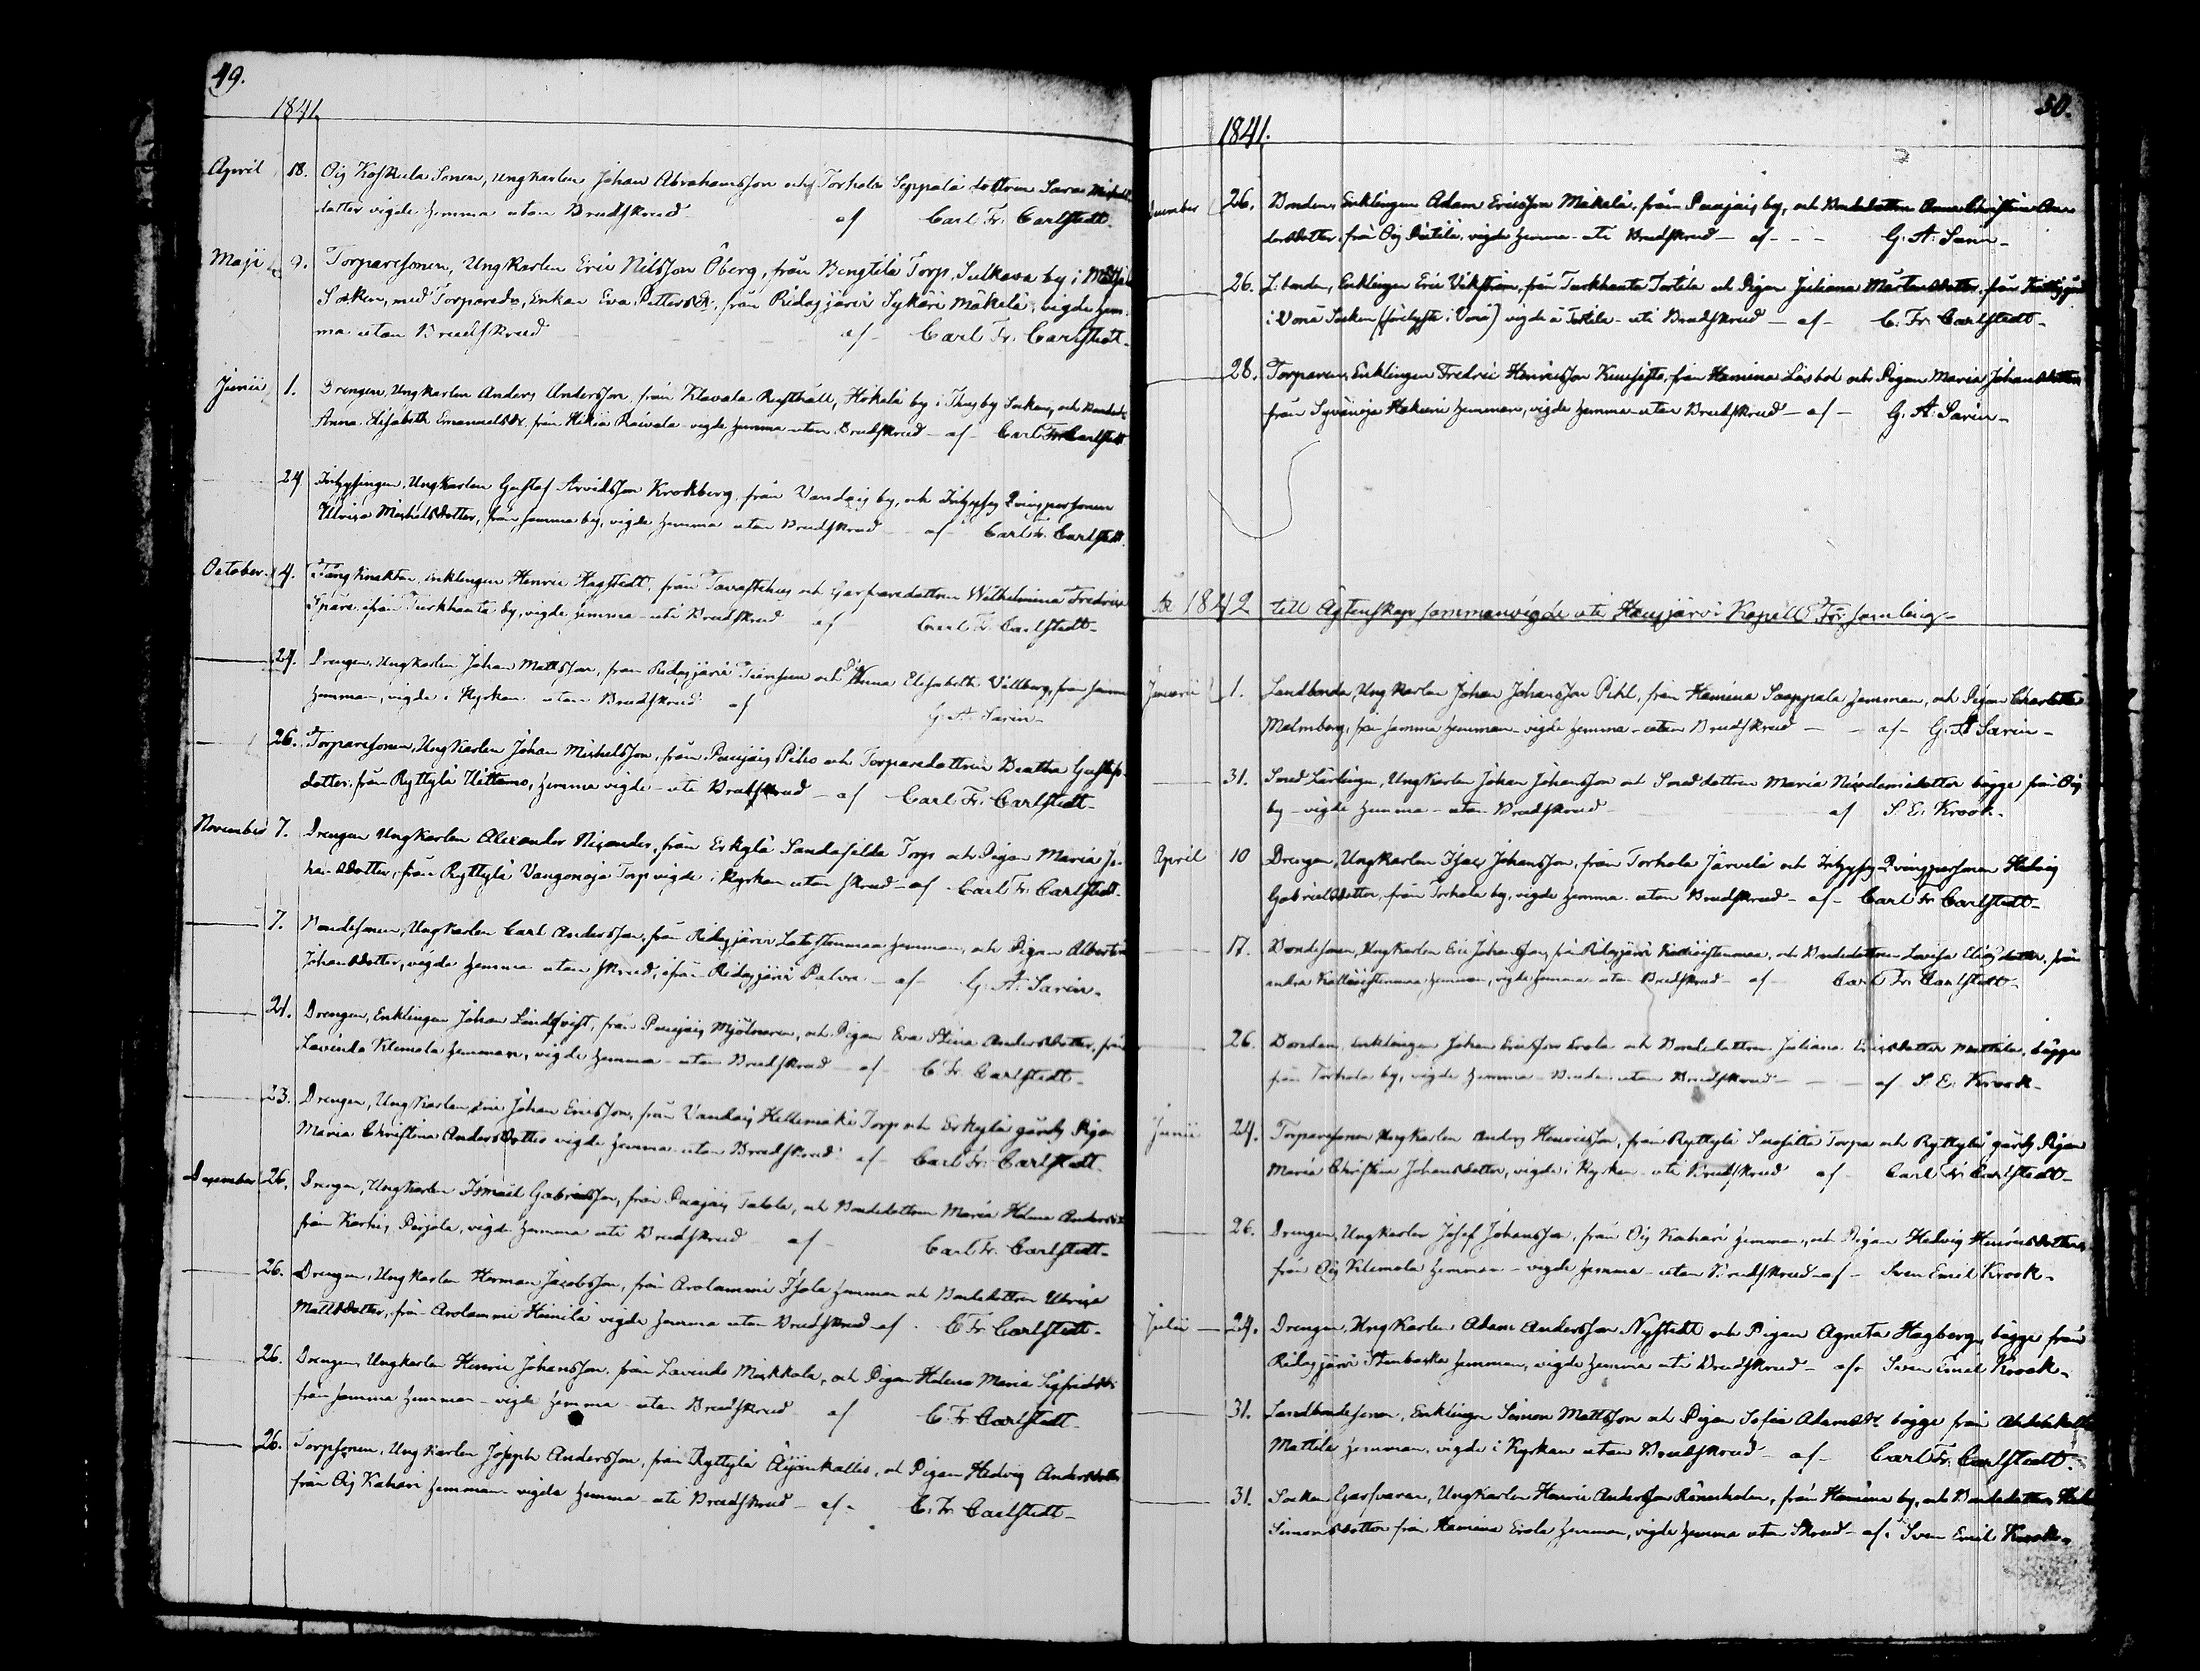 49.
1841.
April 18. Oij Koskela Sonen, Ungkarlen Johan Abrahamsson och Torhola Seppälä dottren Sara Michels
dotter vigde hemma utan Brudskrud af Carl Fr. Carlstedt.
Maji 9. Torparesonen, Ungkarlen Eric Nilsson Öberg, från Bengtilä Torp, Sulkava by i
Socken, med Torpared., Enkan Eva Pettersdr. från Ridasjärvi Sykäri Mäkelä, vigde hem-
ma utan Brudskrud af Carl Fr. Carlstedt.
Junii 1. Drengen, Ungkarlen Anders Andersson, från Klavala Rusthåll, Hökelä by i Thusby Socken, och Bonded.
Anna Elisabeth Emanuelsdr. från Hikiä Raivala vigde hemma utan Brudskrud af Carl Fr. Carlstedt
24 Inhysingen, Ungkarlen Gustaf Arvidsson Krokberg, från Vandais by, och Inhyses Qvinspersonen
Ulrica Michelsdotter, från samma by, vigde hemma utan Brudskrud af Carl Fr. Carlstedt.
October 4. Fångknekten, Enklingen Henric Hagstedt, från Tavastehus och Garfvaredottren Wilhelmina Fredrica
Spåre ifrån Turkhauta by, vigde hemma uti Brudskrud af Carl Fr. Carlstedt.
24. Drengen, Ungkarlen Johan Mattsson, från Ridasjärvi och Pig. Anna Elisabeth Vallberg, från samma
hemman, vigde i Kyrkan utan Brudskrud af G. A. Sarin
26. Torparesonen, Ungkarlen Johan Michelsson, från Puujais Piho och Torparedottren Beatha Gustafs-
dotter från Ryttylä Uittamo, hemma vigde uti Brudskrud af Carl Fr. Carlstedt
November 7. Drengen Ungkarlen Alexander Nicander, från Erkylä Sandafelda Torp och Pigan Maria Jo-
hansdotter, från Ryttylä Vangonoja Torp vigde i Kyrkan utan skrud af Carl Fr. Carlstedt
7. Bondesonen, Ungkarlen Carl Andersson, från Ridasjärvi Latostenmaa hemman, och Pigan Albertina
Johansdotter, vigde hemma utan skrud, ifrån Ridasjärvi Palva af G. A. Sarin
21. Drengen, Enklingen Johan Lindqvist, från Puujais Mjölnaren, och Pigan Eva Stina Andersdotter, från
Lavinda Klemola hemman, vigde hemma utan Brudskrud af C. Fr. Carlstedt
23. Drengen, Ungkarlen Johan Ericsson, från Vandais Hellemäki Torp och Erkylä gårds Pigan
Maria Christina Andersdotter vigde hemma utan Brudskrud af Carl Fr. Carlstedt
December 26. Drengen, Ungkarlen Ismael Gabrielsson, från Puujais Takala, och Bondedottren Maria Helena Andersdr
från Karhis Pirjola, vigde hemma uti Brudskrud af Carl Fr. Carlstedt
26. Drengen, Ungkarlen Herman Jacobsson, från Arolammi Isola hemman och Bondedottren Ulrica
Mattsdotter, från Arolammi Heinilä vigde hemma utan Brudskrud af C. Fr. Carlstedt
26. Drengen, Ungkarlen Henric Johansson, från Lavinda Mickkola, och Pigan Helena Maria Sigfridsdr
från samma hemman vigde hemma utan Brudskrud af C. Fr. Carlstedt
26. Torpsonen, Ungkarlen Joseph Andersson, från Ryttylä Äijänkallio, och Pigan Hedvig Andersdotter
från Oij Kahari hemman vigde hemma uti Brudskrud af C. Fr. Carlstedt
50.
1841.
December 26. Bonden, Enklingen Adam Ericsson Mäkelä, från Puujais by, och Bondedottren Anna Christina An-
dersdotter, från Oij, vigde hemma uti Brudskrud af G. A. Sarin
26. L. bonden, Enklingen Eric Vikström, från Turkhauta Tortila och Pigan Juliana Mårtensdotter, från
i Vånå Socken (förelyste i Vånå) vigde å Tortila uti Brudskrud af C. Fr. Carlstedt
28. Torparen, Enklingen Fredric Henricsson Kuusisto, från Hamina Låsbol och Pigan Maria Johansdotter
från Syvänoja Hakuni hemman, vigde hemma utan Brudskrud af G. A. Sarin
År 1842 till Ägtenskap sammanvigde uti Hausjärvi Kapells För samling
Januarii 1. Landbonde, Ungkarlen Johan Johansson Pihl, från Hamina Saappala hemman, och Pigan Charlotta
Malmberg, från samma hemman vigde hemma utan Brudskrud af G. A. Sarin
31. Smed Lärlingen, Ungkarlen Johan Johansson och Smeddottren Maria Nicodemidotter bägge från Oij
by vigde hemma utan Brudskrud af S. E. Krook.
April 10 Drengen, Ungkarlen Isac Johansson, från Torhola Järvelä och Inhyses Qvinspersonen Hedvig
Gabrielsdotter, från Torhola by, vigde hemma utan Brudskrud af Carl Fr. Carlstedt
17. Bondesonen, Ungkarlen Eric Johansson, från Ridasjärvi, och Bondedottren Lovisa Eliædotter, från
andra hemman, vigde hemma utan Brudskrud af Carl Fr. Carlstedt
26. Bonden, Enklingen Johan Ericsson Erola och Bondedottren Juliana Ericsdotter Mattila, bägge
från Torhola by, vigde hemma utan Brudskrud af S. E. Krook
Junii 24. Torparesonen Ungkarlen Anders Henricsson, från Ryttylä Torpa och Ryttylä gårds Pigan
Maria Christina Johansdotter, vigde i Kyrkan uti Brudskrud af Carl Fr. Carlstedt
26. Drengen, Ungkarlen Josef Johansson, från Oij Kahari hemman, och Pigan Hedvig Henricsdotter
från Oij Klemola hemman vigde hemma utan Brudskrud af Sven Emil Krook.
Julii 24. Drengen, Ungkarlen Adam Andersson Nystedt och Pigan Agneta Hagberg, bägge från
Ridasjärvi Stenbacka hemman, vigde hemma uti Brudskrud af Sven Emil Krook.
31. Landbondesonen, Enklingen Simon Mattsson och Pigan Sofia Adamsdr. bägge från
Mattila hemman, vigde i Kyrkan utan Brudskrud af Carl Fr. Carlstedt.
31. Socken Garfvaren, Ungkarlen Henric Andersson Rönnholm, från Hamina by, och Bondedottren
Simonsdotter från Hamina Erola hemman, vigde hemma utan Skrud af Sven Emil Krook.